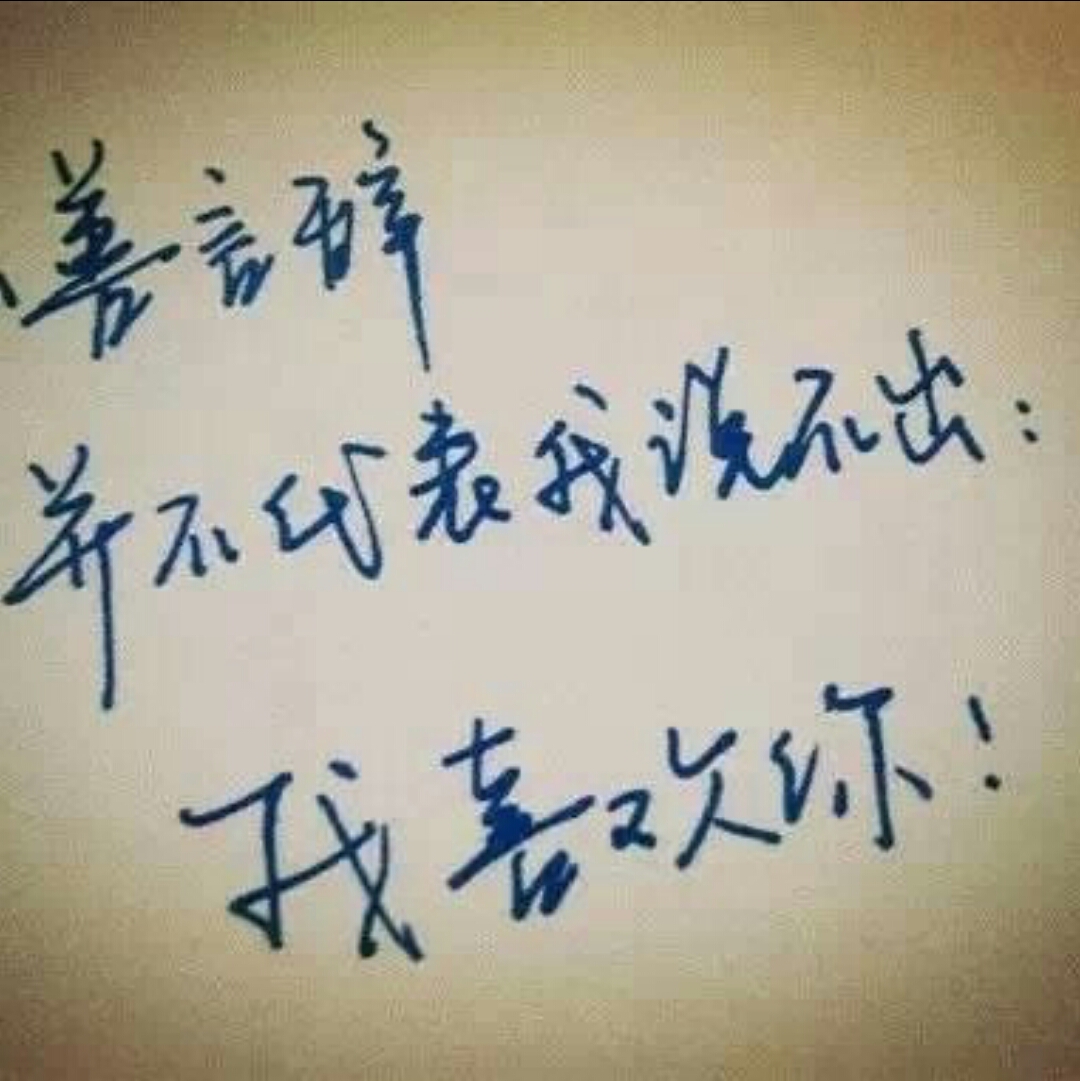 善言辞
并不代表我说不出：
我喜欢你！